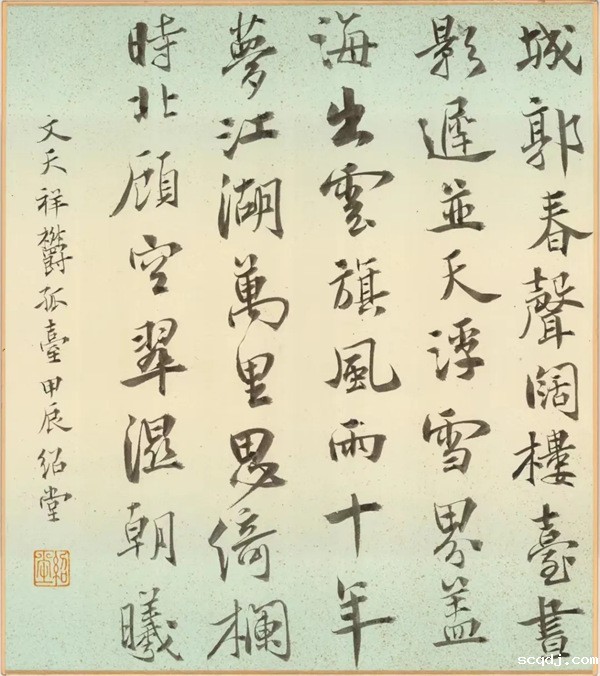 城郭春聲闊樓臺書
影遲並天浮雪界蓋
海出雲旗風雨十年
夢江湖萬里思倚欄
時北顧空翠濕朝曦
文天祥欝孤臺甲辰紹堂
紹堂
www.scqdj.com